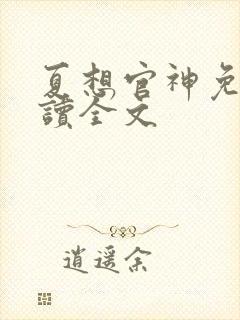 夏想官神免
讀全文
逍遥余